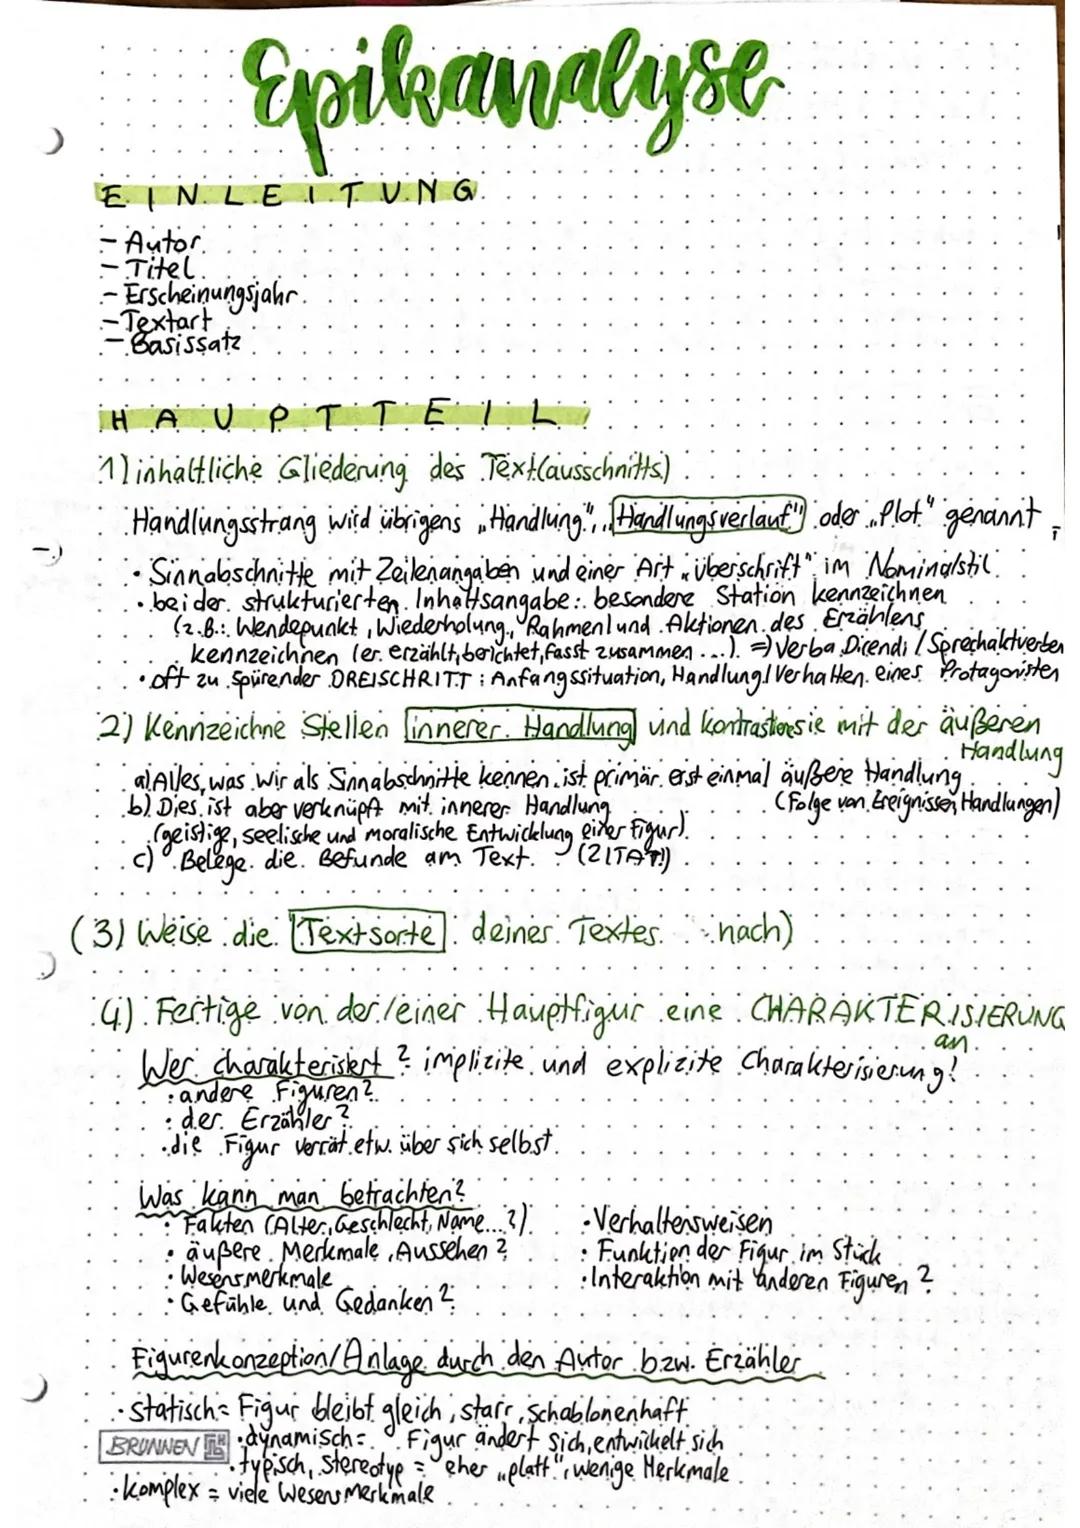 Epikanalyse
EINLEITUNG
- Autor
- Titel
- Erscheinungsjahr
- Textart
- Basissatz
HAUPTTEIL
1) inhaltliche Gliederung des Text(ausschnitts)
Handlungsstrang wird übrigens "Handlung", "Handlungsverlauf" oder "Plot" genannt
• Sinnabschnitte mit Zeilenangaben und einer Art "Überschrift" im Nominalstil
• bei der strukturierten Inhaltsangabe: besondere Station kennzeichnen
(z.B.: Wendepunkt, Wiederholung, Rahmen) und Aktionen des Erzählens
kennzeichnen (er erzählt, berichtet, fasst zusammen ...). => Verba Dicendi / Sprechaktverben
• oft zu spürender DREISCHRITT: Anfangssituation, Handlung/Verhalten eines Protagonisten
2) Kennzeichne Stellen innerer Handlung und kontrastiere sie mit der äußeren
Handlung
a) Alles, was wir als Sinnabschnitte kennen ist primär erst einmal äußere Handlung
(Folge von Ereignissen, Handlungen)
b) Dies ist aber verknüpft mit innerer Handlung
(geistige, seelische und moralische Entwicklung einer Figur).
c) Belege die Befunde am Text. (ZITAT!)
(3) Weise die Textsorte deines Textes nach)
4) Fertige von der/einer Hauptfigur eine CHARAKTERISIERUNG
an
Wer charakterisiert? implizite und explizite Charakterisierung!
• andere Figuren?
• der Erzähler?
• die Figur verrät etw. über sich selbst
Was kann man betrachten?
• Fakten (Alter, Geschlecht, Name...?)
• äußere Merkmale, Aussehen?
• Wesensmerkmale
• Gefühle und Gedanken?
• Verhaltensweisen
• Funktion der Figur im Stück
• Interaktion mit anderen Figuren?
Figurenkonzeption/Anlage durch den Autor bzw. Erzähler
• statisch = Figur bleibt gleich, starr, schablonenhaft
BRUNNEN
• dynamisch = Figur ändert sich, entwickelt sich
• typisch, stereotype = eher "platt", wenige Merkmale
• komplex = viele Wesensmerkmale